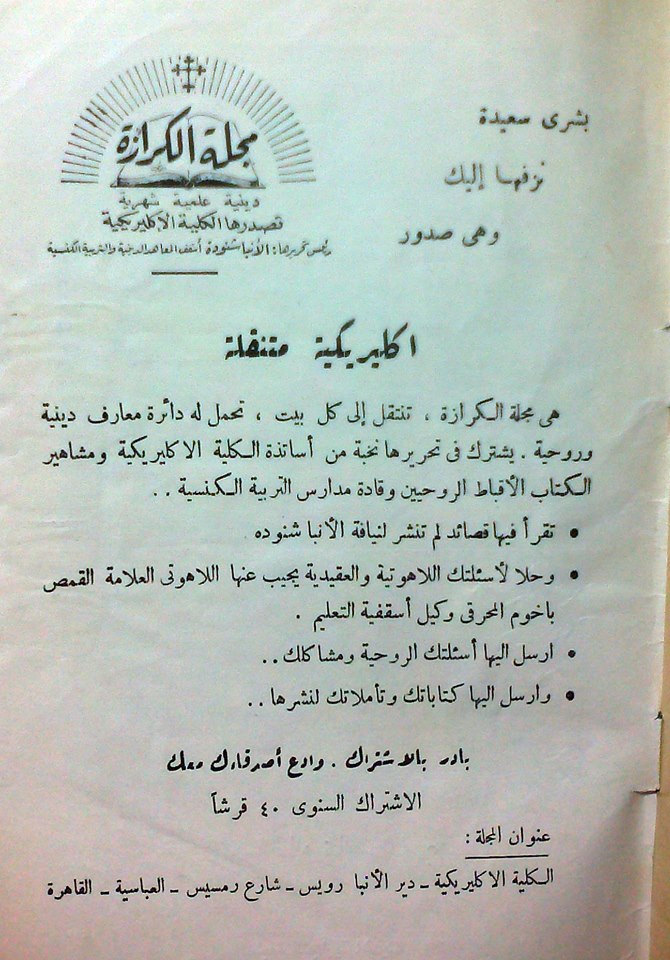 بشرى سعيدة
نزفها إليك
وهى صدور
مجلة الكرازة
دينية علمية شهرية
تصدرها الكلية الإكليريكية
رئيس تحريرها: الأنبا شنودة أسقف المعاهد الدينية والتربية الكنسية
اكليريكية متنقلة
هى مجلة الكرازة ، تنتقل إلى كل بيت ، تحمل له دائرة معارف دينية
وروحية . يشترك فى تحريرها نخبة من أساتذة الكلية الاكليريكية ومشاهير
الكتاب الأقباط الروحيين وقادة مدارس التربية الكنسية . .
• تقرأ فيها قصائد لم تنشر لنيافة الأنبا شنوده
• وحلا لأسئلتك اللاهوتية والعقيدية يجيب عنها اللاهوتى العلامة القمص
باخوم المحرقى وكيل أسقفية التعليم .
• ارسل اليها أسئلتك الروحية ومشاكلك . .
• وارسل اليها كتاباتك وتأملاتك لنشرها . .
بادر بالاشتراك . وادع أصدقاءك معك
الاشتراك السنوى ٤٠ قرشاً
عنوان المجلة :
الكلية الاكليريكية ـ دير الأنبا رويس ـ شارع رمسيس ـ العباسية ـ القاهرة